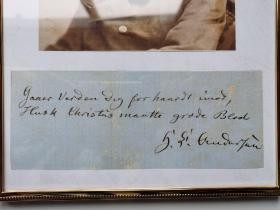 Gaaer Verden Dig for haardt imod,
Husk Christus maatte græde Blod
H. C. Andersen